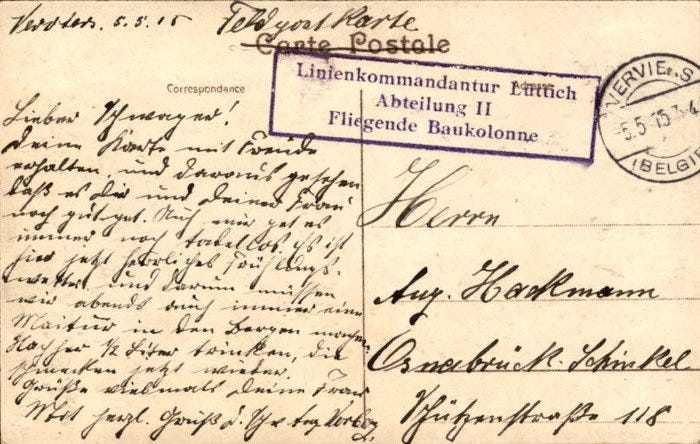 Verviers. 5.5.15 Feldpostkarte
Carte Postale
Correspondance
Adresse
Linienkommandantur Lüttich
Abteilung II
Fliegende Baukolonne
VERVIERS
5.5.15 3-4
(BELGIE
Lieber Schwager!
Deine Karte mit Freude
erhalten, und daraus gesehen
daß es Dir und Deiner Frau
noch gut get. Auch mir get es
immer noch tadellos. Es ist
hier jetzt herrliches Frühlings-
wetter und darum müssen
wir abends auch immer eine
Maitur in den Bergen machen
Nachher 1/2 Liter trinken, die
schmecken jetzt wieder.
Grüße vielmals Deine Frau
Mit herzl. Gruß d. Schw
Herrn
Aug. Hackmann
Osnabrück-Schinkel
Schützenstraße 118